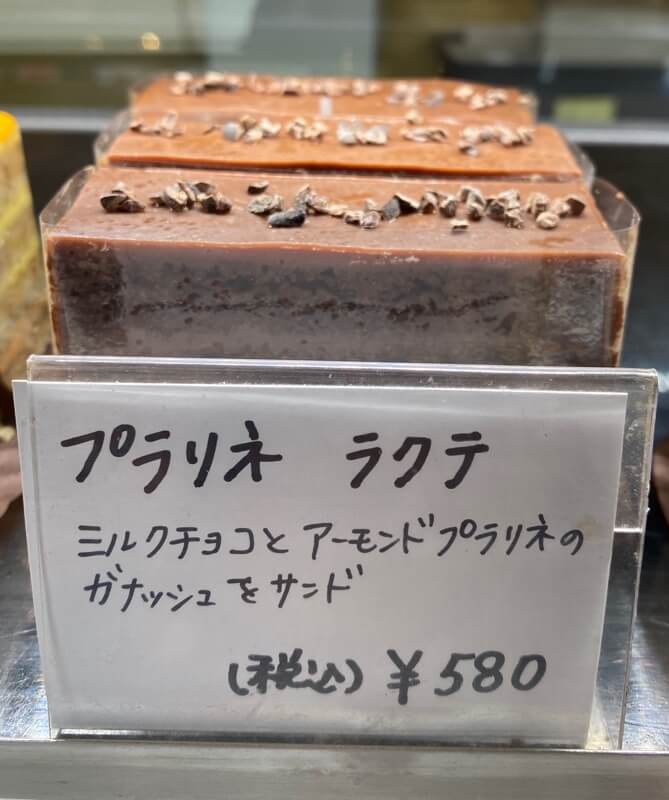 プラリネ ラクテ
ミルクチョコと アーモンドプラリネの
ガナッシュをサンド
(税込) ¥580